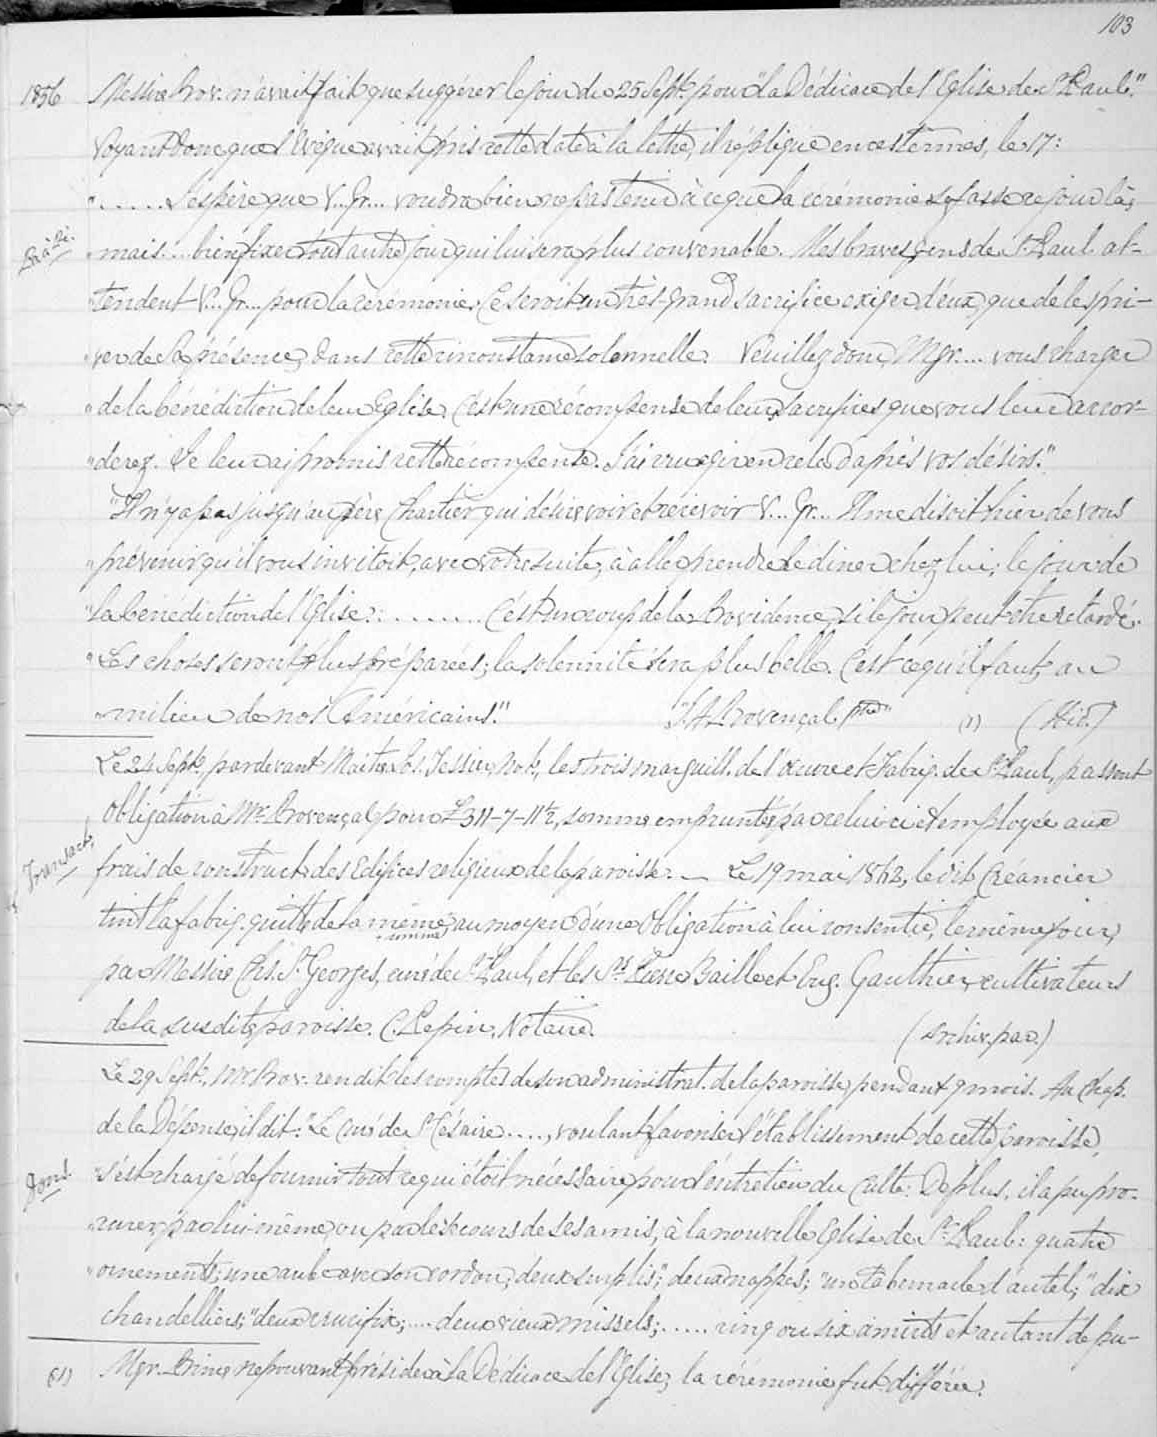 103
1856 Messire Prov. n'avait fait que suggérer le jour du 25 Sept. pour "la Dédicace de l'Eglise de St Paul."
Voyant donc que l'Evêque avait pris cette date à la lettre, il réplique en ces termes, le 17:
"...... J'espère que V... Gr... voudra bien ne pas tenir à ce que la cérémonie se fasse ce jour là;
"mais.... bien fixer tout autre jour qui lui sera plus convenable. Mes braves gens de St Paul at-
"tendent V... Gr... pour la cérémonie. Ce seroit un très-grand sacrifice exiger d'eux, que de les pri-
"ver de Sa présence, dans cette circonstance solennelle. Veuillez donc, Mgr.... vous charger
"de la bénédiction de leur Eglise. C'est une récompense de leurs sacrifices que vous leur accor-
"derez. Je leur ai promis cette récompense. J'ai cru agir en cela d'après vos désirs."
"Il n'y a pas jusqu'au père Chartier qui désire voir et recevoir V... Gr... Il me disoit hier de vous
"prévenir qu'il vous invitoit, avec votre suite, à aller prendre le diner chez lui, le jour de
"la bénédiction de l'Eglise:......... C'est un coup de la Providence, si le jour peut être retardé.
"Les choses seront plus préparées; la solennité sera plus belle. C'est ce qu'il faut, au
"milieu de nos Américains." "J. A. Provençal, ptre" (1) (Hid.)
Le 24 Sept. par devant Maitre Ls. Tessier, Not., les trois marguill. de l'œuvre et Fabriq. de St Paul, passent
Transact. obligation à Mr. Provençal pour £311-7-11½, somme empruntée par celui-ci et employée aux
frais de construct. des Edifices religieux de la paroisse. — Le 19 mai 1862, le dit Créancier
tint la fabriq. quitte de la même somme, au moyen d'une Obligation à lui consentie, le même jour,
par Messire Chs. St. Georges, curé de St Paul, et les Srs Pierre Baille et Eug. Gauthier, cultivateurs
de la susdite paroisse. C. Lepin, Notaire. (Archiv. par.)
Le 29 Sept., Mr. Prov. rendit les comptes de son administrat. de la paroisse pendant 9 mois. Au chap.
de la Dépense, il dit: "Le Curé de St Césaire...., voulant favoriser l'établissement de cette paroisse,
Dons "s'est chargé de fournir tout ce qui étoit nécessaire pour l'entretien du Culte. De plus, il a pu pro-
"curer, par lui-même, ou par le secours de ses amis, à la nouvelle Eglise de St Paul: quatre
"ornements; une aube avec son cordon; deux surplis"; deux nappes; "un tabernacle d'autel;" dix
chandelliers; "deux crucifix;.... deux vieux missels;...... cinq ou six amicts et autant de pu-
(1) Mgr. Prince ne pouvant présider à la Dédicace de l'Eglise, la cérémonie fut différée.